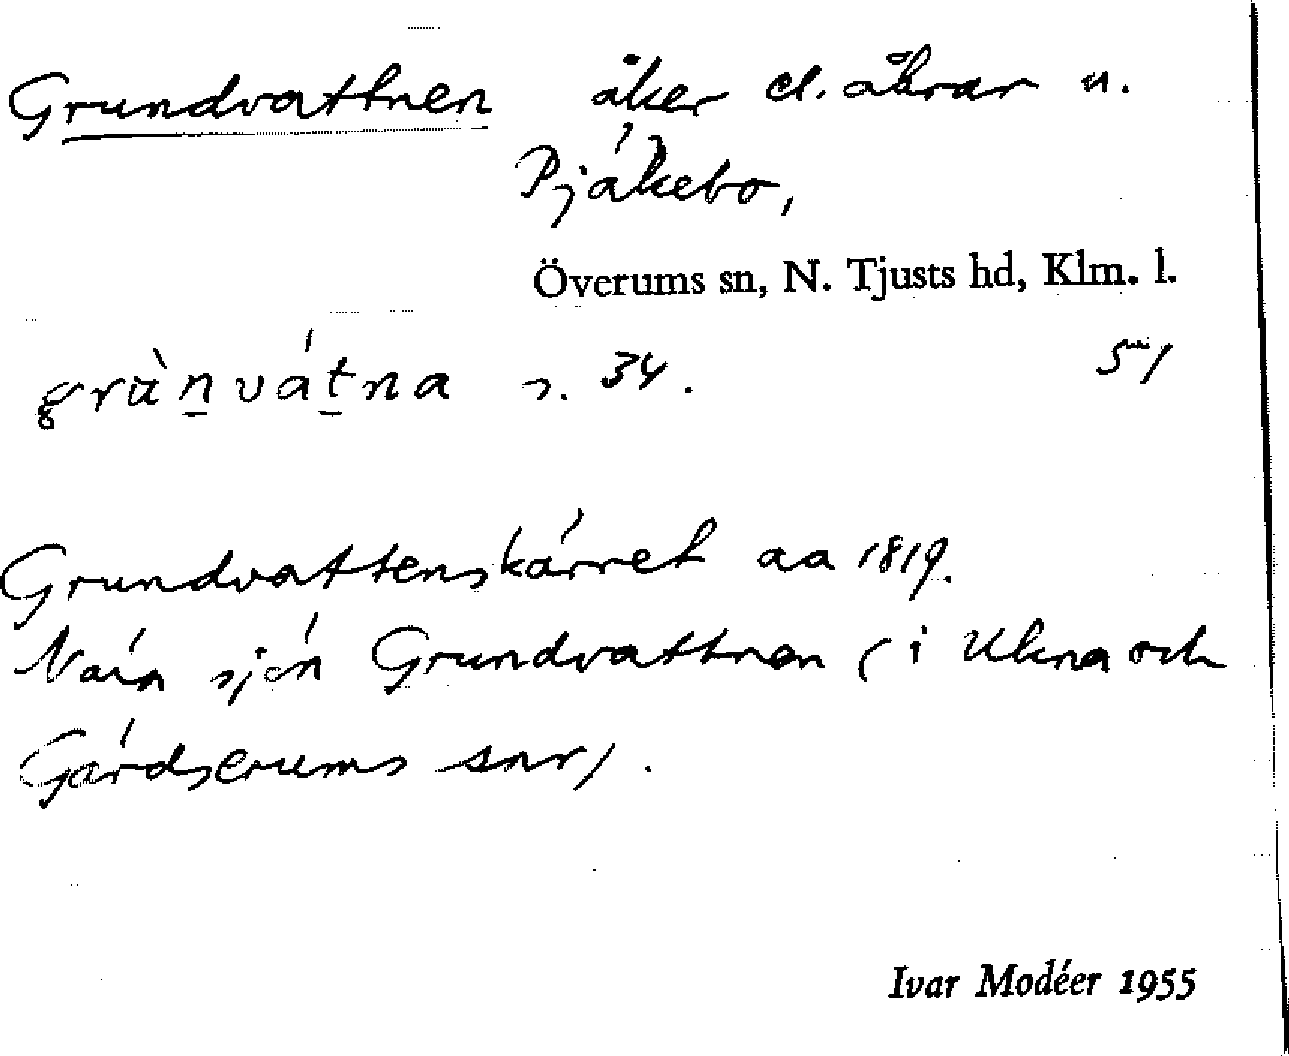 Grundvattnen åker el. åkrar u.
Pjäkebo,
Överums sn, N. Tjusts hd, Klm. l.
grùn̲vát̲na s. 34. 51
Grundvattenskärret aa 1819.
Vain sjön Grundvattnen (i Ukna och
Gärdserums snr).
Ivar Modéer 1955